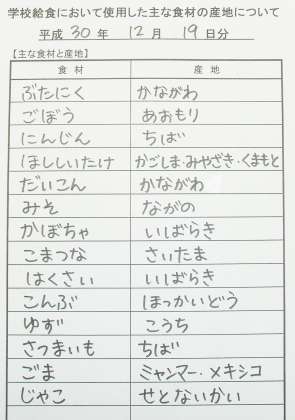 学校給食において使用した主な食材の産地について
平成 30 年 12 月 19 日分
【主な食材と産地】
食材 産地
ぶたにく かながわ
ごぼう あおもり
にんじん ちば
ほししいたけ かごしま・みやざき・くまもと
だいこん かながわ
みそ ながの
かぼちゃ いばらき
こまつな さいたま
はくさい いばらき
こんぶ ほっかいどう
ゆず こうち
さつまいも ちば
ごま ミャンマー・メキシコ
じゃこ せとないかい